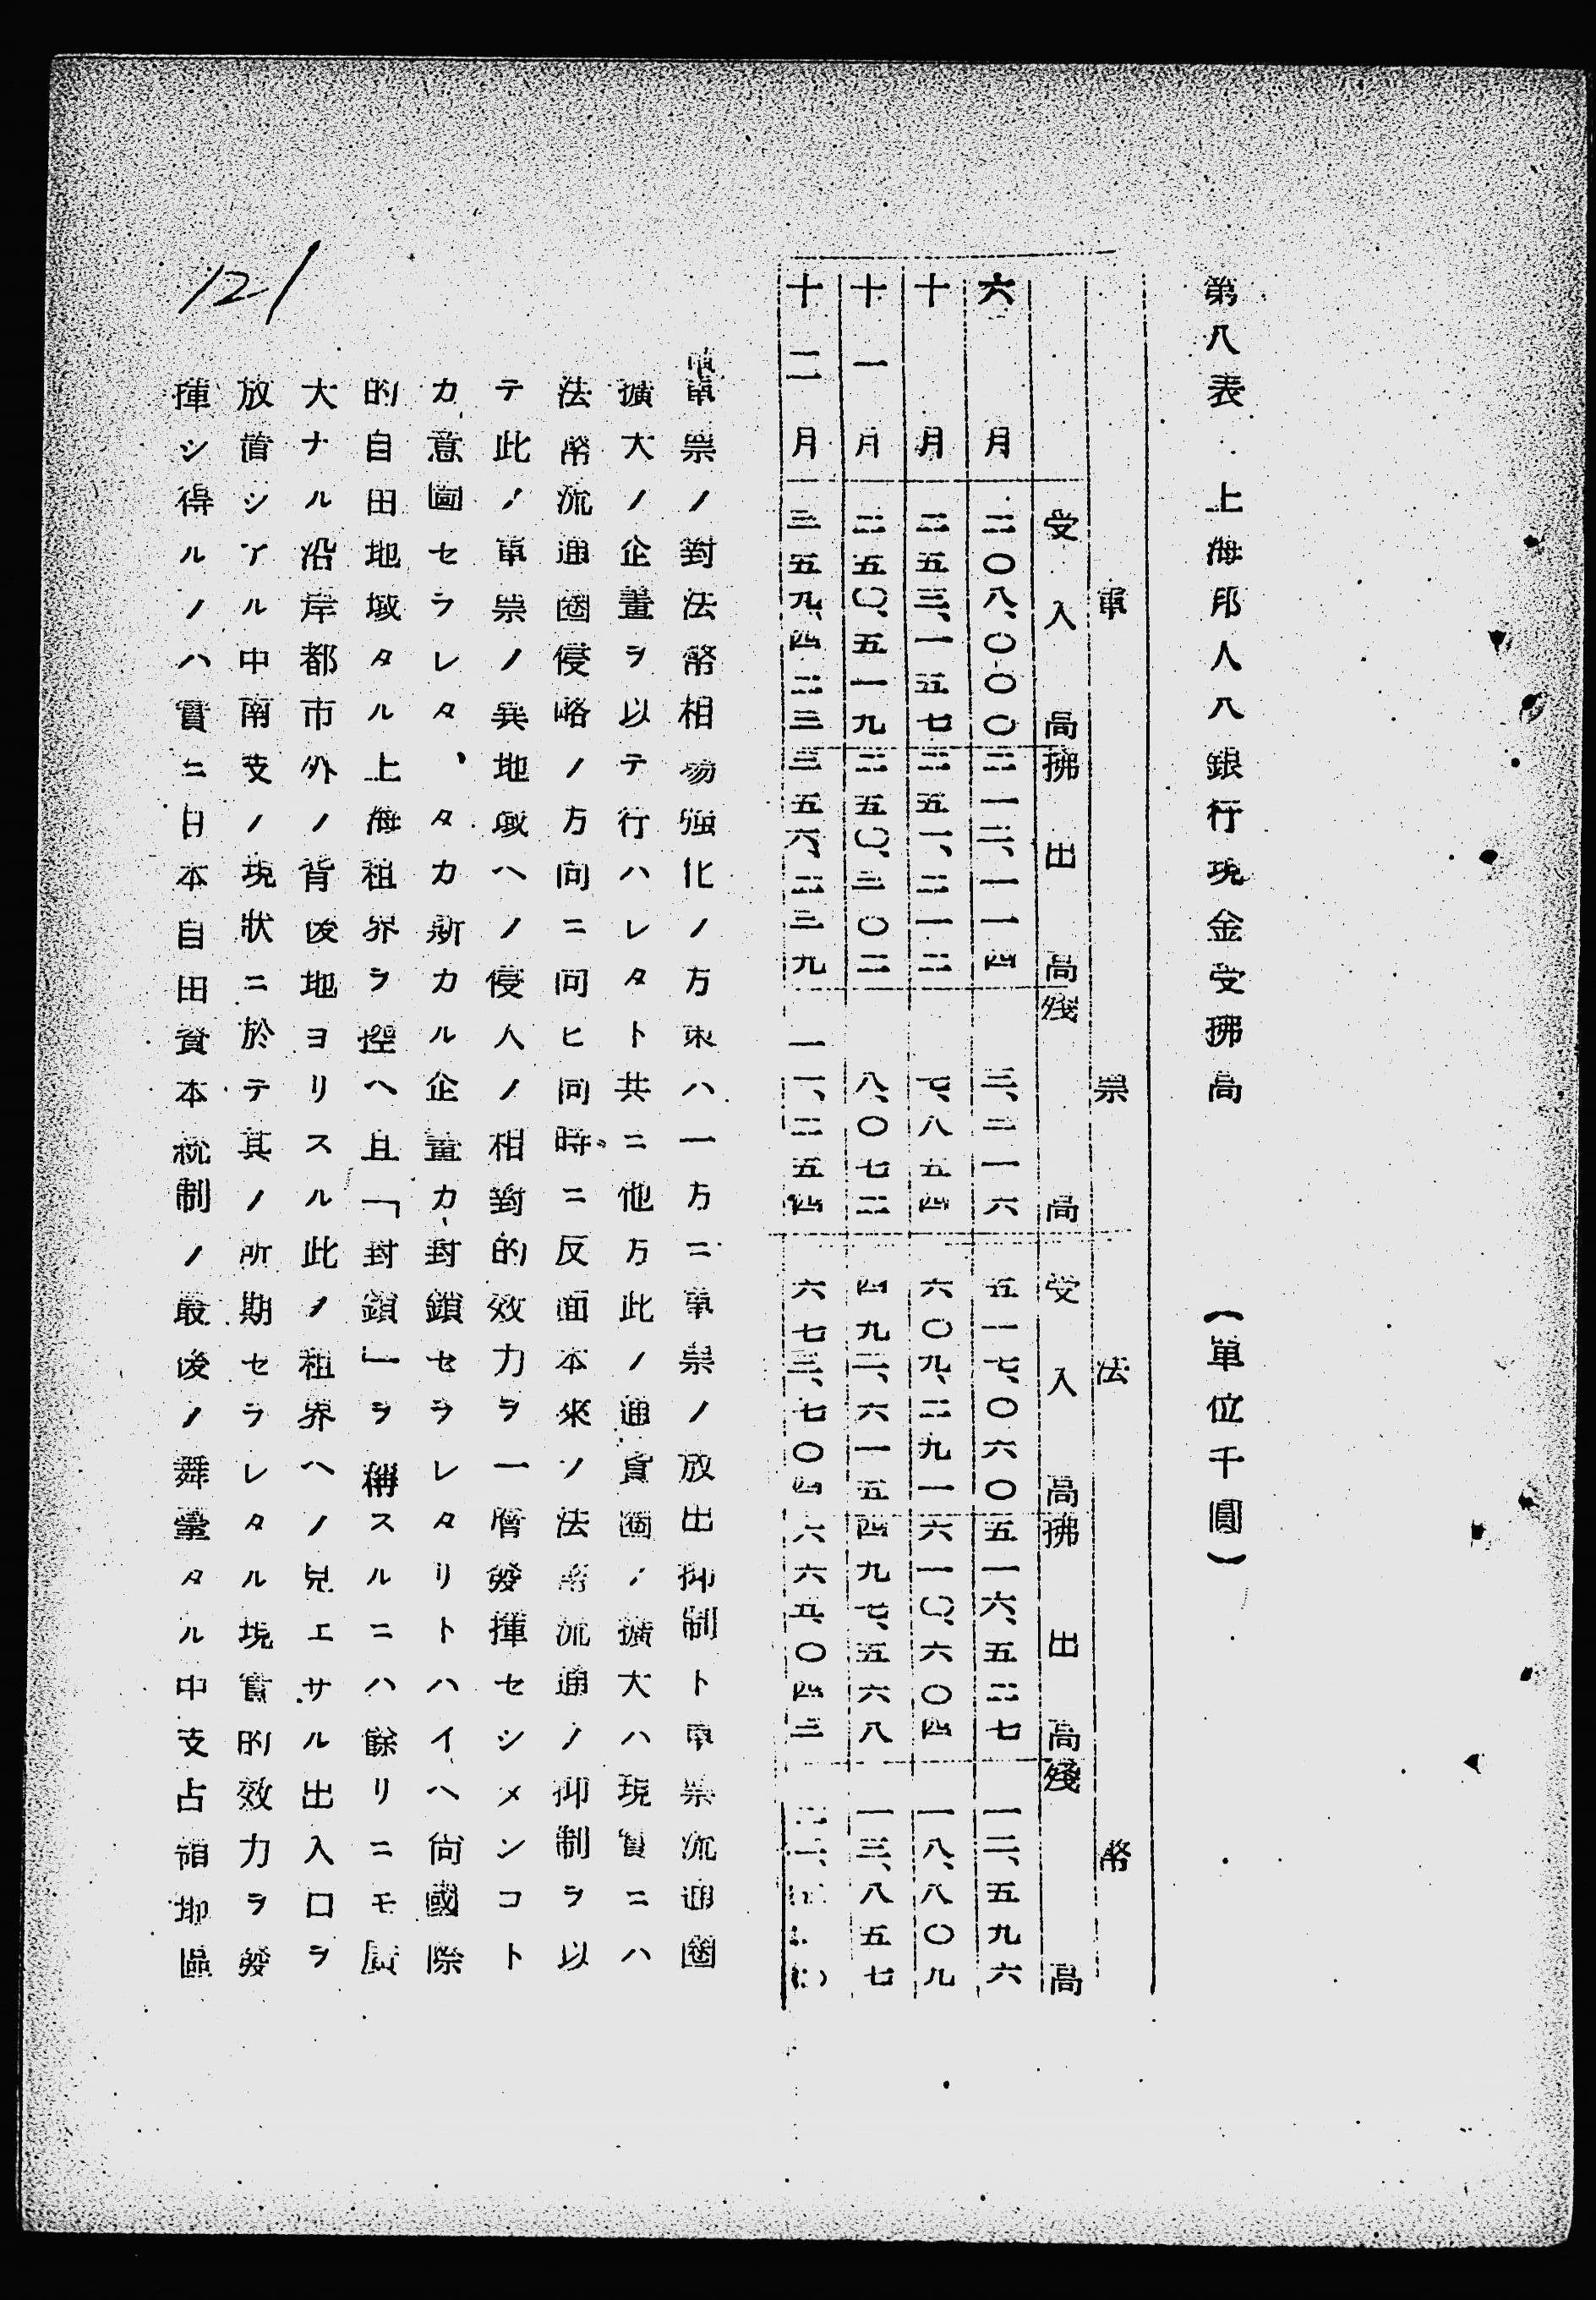 第八表　上海邦人八銀行現金受拂高　（單位千圓）
軍票　法幣
受入高　拂出高　殘高　受入高　拂出高　殘高
六月　二〇八、〇〇〇　二一二、一一四　三、二一六　五一七、〇六〇　五一六、五二七　一二、五九六
十月　二五三、一五七　二五一、二一二　七、八五四　六〇九、二九一　六一〇、六〇四　一八、八〇九
十一月　二五〇、五一九　二五〇、三〇二　八、〇七二　四九二、六一五　四九七、五六八　一三、八五七
十二月　三五九、四二三　三五六、二三九　一一、二五四　六七三、七〇四　六六五、〇四三
軍票ノ對法幣相場強化ノ方策ハ一方ニ軍票ノ放出抑制ト軍票流通圈
擴大ノ企畫ヲ以テ行ハレタト共ニ他方此ノ通貨圈ノ擴大ハ現實ニハ
法幣流通圈侵略ノ方向ニ向ヒ同時ニ反面本來ソノ法幣流通ノ抑制ヲ以
テ此ノ軍票ノ異地域ヘノ侵入ノ相對的效力ヲ一層發揮セシメンコト
カ意圖セラレタ、タカ斯カル企畫カ封鎖セラレタリトハイヘ尚國際
的自由地域タル上海租界ヲ控ヘ且「封鎖」ヲ稱スルニハ餘リニモ廣
大ナル沿岸都市外ノ背後地ヨリスル此ノ租界ヘノ見エサル出入口ヲ
放置シアル中南支ノ現狀ニ於テ其ノ所期セラレタル現實的效力ヲ發
揮シ得ルノハ實ニ日本自由資本統制ノ最後ノ舞臺タル中支占領地區
121